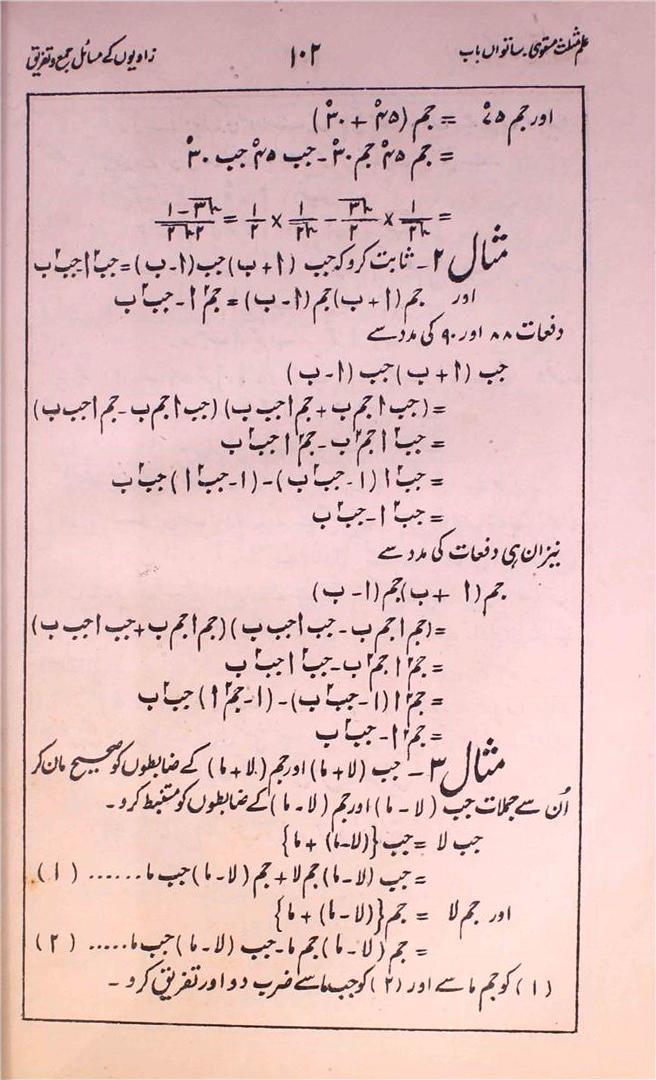 علم مثلث مستوی۔ ساتواں باب ۱۰۲ زاویوں کے مسائل جمع و تفریق
اور جم ۷۵° = جم (۴۵° + ۳۰°)
= جم ۴۵° جم ۳۰° - جب ۴۵° جب ۳۰°
= ۱/√۲ × √۳/۲ - ۱/√۲ × ۱/۲ = (√۳ - ۱)/(۲√۲)
مثال ۲۔ ثابت کرو کہ جب (ا + ب) جب (ا - ب) = جب۲ ا - جب۲ ب
اور جم (ا + ب) جم (ا - ب) = جم۲ ا - جب۲ ب
دفعات ۸۸ اور ۹۰ کی مدد سے
جب (ا + ب) جب (ا - ب)
= (جب ا جم ب + جم ا جب ب) (جب ا جم ب - جم ا جب ب)
= جب۲ ا جم۲ ب - جم۲ ا جب۲ ب
= جب۲ ا (۱ - جب۲ ب) - (۱ - جب۲ ا) جب۲ ب
= جب۲ ا - جب۲ ب
نیز ان ہی دفعات کی مدد سے
جم (ا + ب) جم (ا - ب)
= (جم ا جم ب - جب ا جب ب) (جم ا جم ب + جب ا جب ب)
= جم۲ ا جم۲ ب - جب۲ ا جب۲ ب
= جم۲ ا (۱ - جب۲ ب) - (۱ - جم۲ ا) جب۲ ب
= جم۲ ا - جب۲ ب
مثال ۳۔ جب (لا + ما) اور جم (لا + ما) کے ضابطوں کو صحیح مان کر
اُن سے جملات جب (لا - ما) اور جم (لا - ما) کے ضابطوں کو مستنبط کرو۔
جب لا = جب {(لا - ما) + ما}
= جب (لا - ما) جم لا + جم (لا - ما) جب ما ...... (۱)
اور جم لا = جم {(لا - ما) + ما}
= جم (لا - ما) جم ما - جب (لا - ما) جب ما ..... (۲)
(۱) کو جم ما سے اور (۲) کو جب ما سے ضرب دو اور تفریق کرو۔